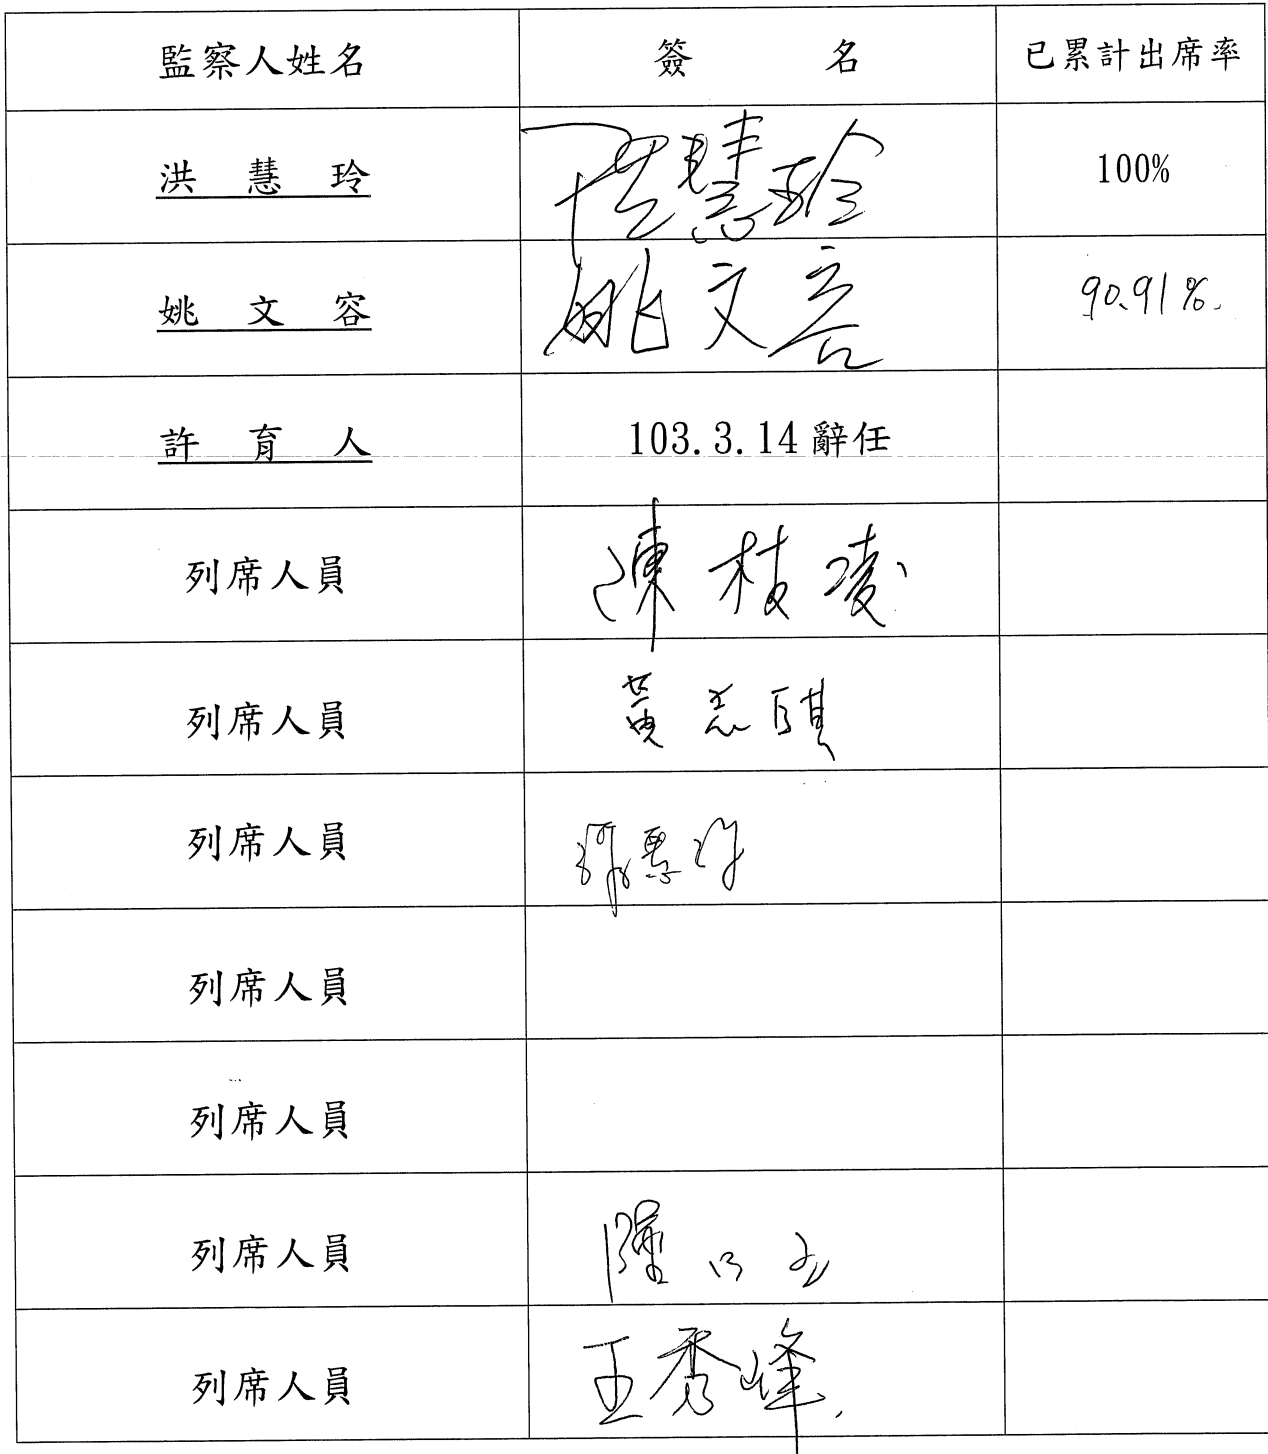 監察人姓名 簽 名 已累計出席率
洪 慧 玲 洪慧玲 100%
姚 文 容 姚文容 90.91%.
許 育 人 103.3.14辭任
列席人員 陳枝凌
列席人員 黃志騏
列席人員
列席人員
列席人員
列席人員
列席人員 王秀峰